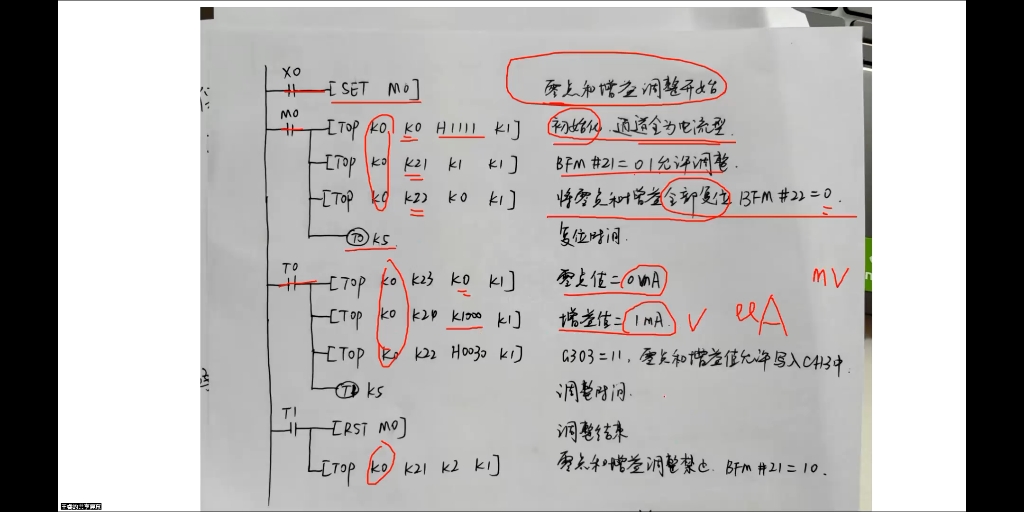 X0
[SET M0] 零点和增益调整开始
M0
[TOP K0 K0 H1111 K1] 初始化 通道全为电流型.
[TOP K0 K21 K1 K1] BFM #21=01允许调整.
[TOP K0 K22 K0 K1] 将零点和增益全部复位 BFM #22=0.
T0 K5 复位时间.
T0
[TOP K0 K23 K0 K1] 零点值=0mA mV
[TOP K0 K24 K1000 K1] 增益值=1mA. V uA
[TOP K0 K22 H0030 K1] G3O3=11, 零点和增益值允许写入CH3中.
T1 K5 调整时间.
T1
[RST M0] 调整结束
[TOP K0 K21 K2 K1] 零点和增益调整禁止. BFM #21=10.